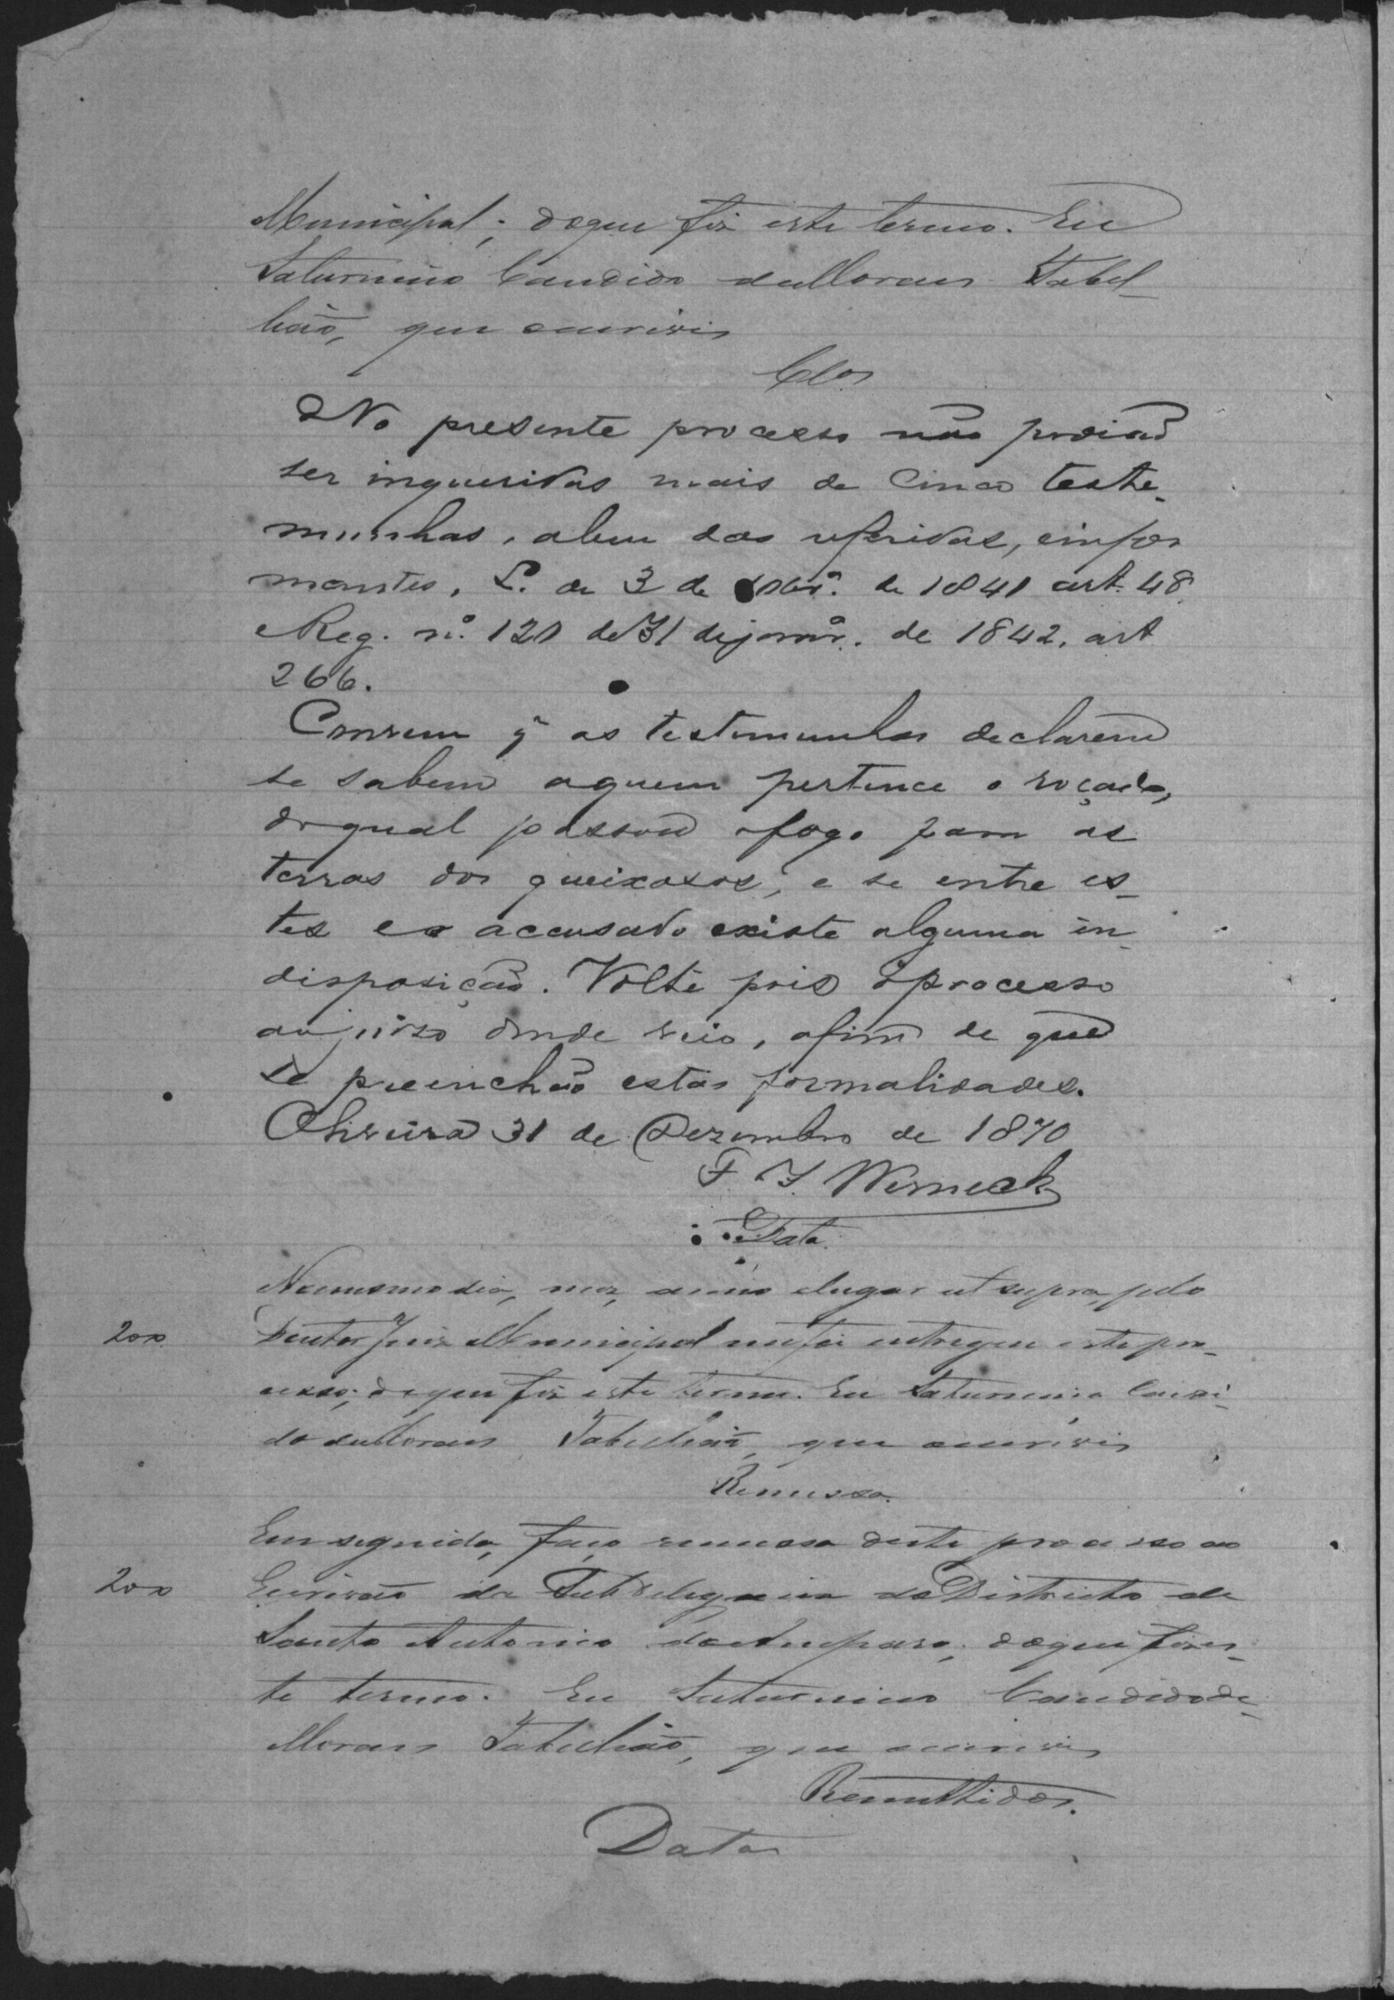 Municipal; do que fiz este termo. Eu
Saturnino Candido de Moraes Tabel-
lião, que escrevi
Clos
No presente processo não podião
ser inqueridas mais de cinco teste-
munhas, alem das referidas, e infor
mantes, L. de 3 de Dezbrº. de 1841 art. 48
Reg. nº. 120 de 31 de janrº. de 1842, art
266.
Convem q̃ as testemunhas declarem
se sabem a quem pertence o roçado,
do qual passou o fogo para as
terras dos queixosos, e se entre es-
tes e o accusado existe alguma in-
disposição. Volte pois o processo
ao juizo donde veio, afim de que
se preenchão estas formalidades.
Oliveira 31 de Dezembro de 1870
F. J. Werneck
Data
No mesmo dia, mez, anno e lugar ut supra, pelo
200 Doutor Juiz Municipal me foi entregue este pro-
cesso; do que fiz este termo. Eu Saturnino Candi-
do de Moraes Tabellião, que escrevi
Remessa.
Em seguida, faço remessa deste processo ao
200 Escrivão da Subdelegacia do Districto de
Santo Antonio do Amparo; do que fiz es-
te termo. Eu Saturnino Candido de
Moraes Tabellião, que escrevi
Remettidos.
Data